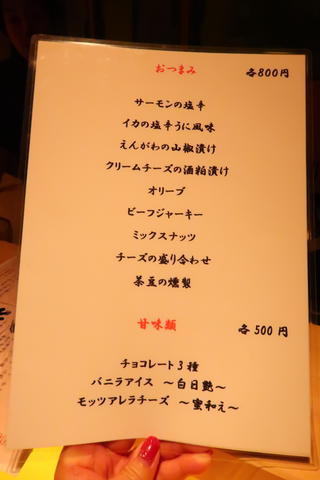 おつまみ 各800円
サーモンの塩辛
イカの塩辛うに風味
えんがわの山椒漬け
クリームチーズの酒粕漬け
オリーブ
ビーフジャーキー
ミックスナッツ
チーズの盛り合わせ
茶豆の燻製
甘味類 各500円
チョコレート3種
バニラアイス ～白日艶～
モッツアレラチーズ ～蜜和え～